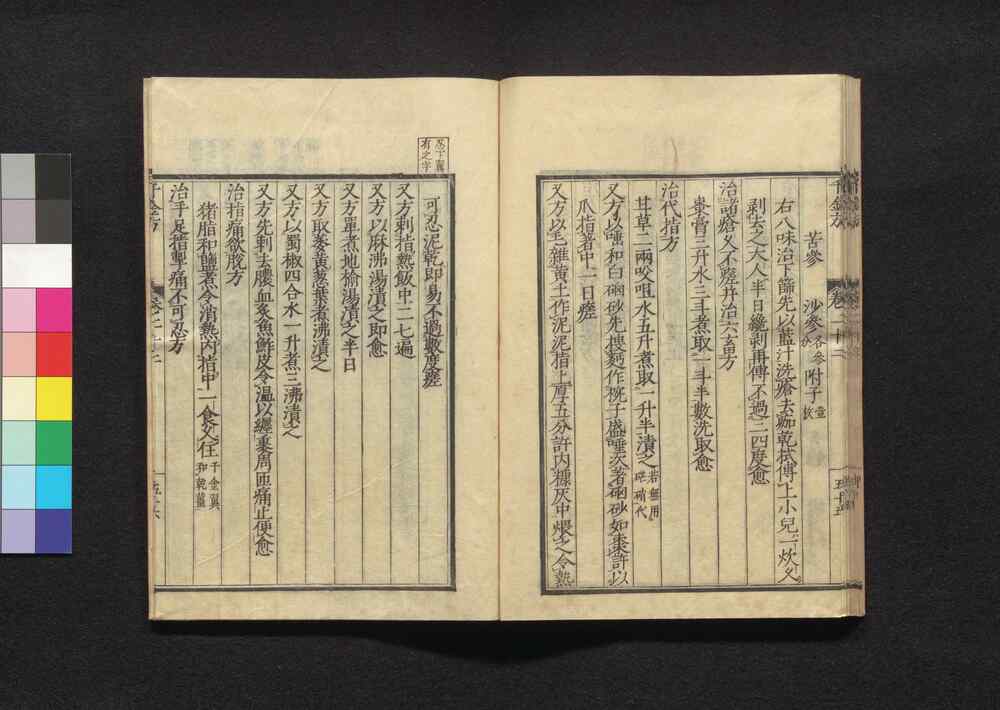 苦參 沙參各參分 附子壹枚
右八味治下篩先以藍汁洗瘡去痂乾拭傅上小兒一炊久
剥去之大人半日纔剥再傅不過三四度愈
治諸瘡久不瘥并治六畜方
棗膏三升水三斗煮取一斗半數洗取愈
治代指方
甘草二兩㕮咀水五升煮取一升半漬之若無用芒硝代
又方以唾和白硇砂先搜麪作椀子盛唾次著硇砂如棗許以
爪指著中一日瘥
又方以毛雜黃土作泥泥指上厚五分許内煻灰中煨之令熱
千金方
卷二十二
五十五
忍下翼有之字
可忍泥乾即易不過數度瘥
又方刺指熱飯中二七遍
又方以麻沸湯漬之即愈
又方單煮地榆湯漬之半日
又方取萎黃葱葉煮沸漬之
又方以蜀椒四合水一升煮三沸漬之
又方先刺去膿血炙魚鮓皮令温以纏裹周匝痛止便愈
治指痛欲脱方
猪脂和鹽煮令消熱内指中一食久住千金翼和乾薑
治手足指掣痛不可忍方
千金方
卷二十二
五十六